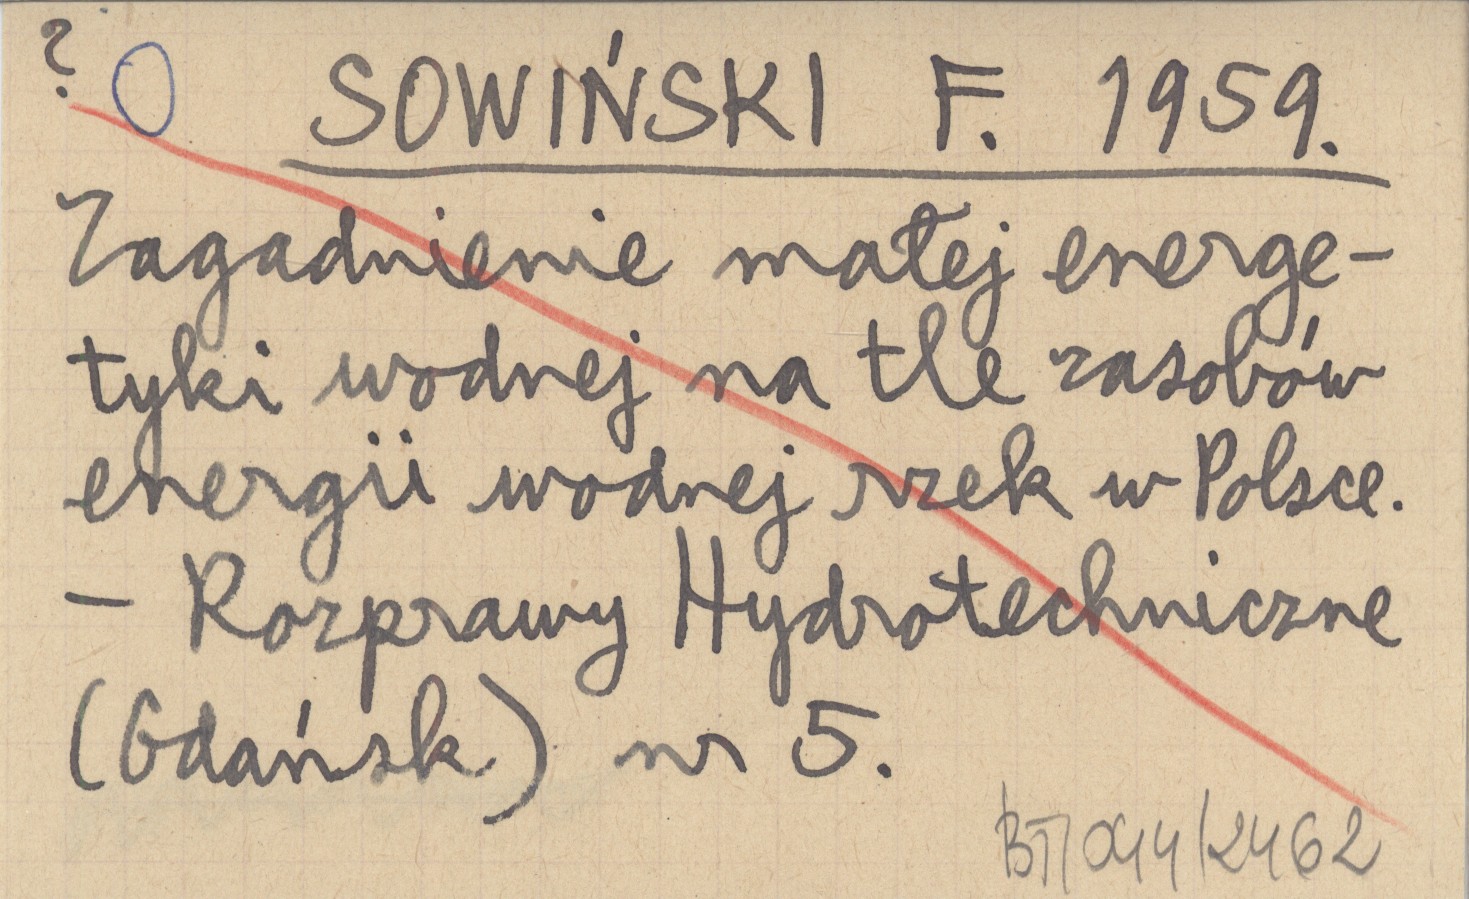 ? O SOWIŃSKI F. 1959.
Zagadnienie małej energe-
tyki wodnej na tle zasobów
energii wodnej rzek w Polsce.
– Rozprawy Hydrotechniczne
(Gdańsk) nr 5.
BT/044/2462